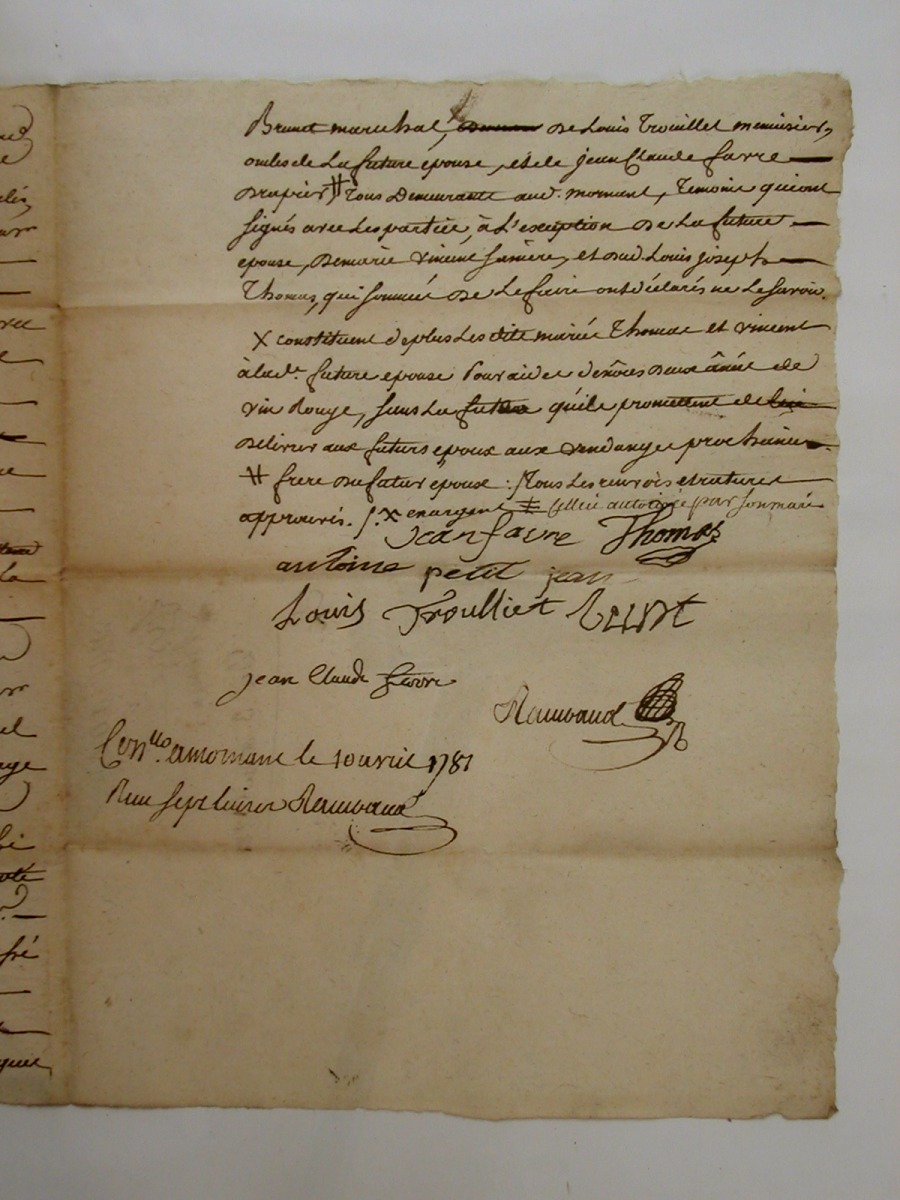 Brunet marechal, de Louis Trouillet menuisier,
oncles de La future epouse, et de jean Claude favre
drapier # Tous Demeurants aud. mornant, Temoins qui ont
signés avec Les parties, à L'exception de La future
epouse, de marie vincent, et dud. Louis joseph
Thomas, qui sommés de Le faire ont déclarés ne Le savoir.
X constituent deplus Les dits mariés Thomas et vincent
à lad. future epouse Pour aide de nôces deux ânées de
vin Rouge, sans La futaille qu'ils promettent de
delivrer aux futurs epoux aux vendanges prochaines
# frere du futur epoux : Tous Les renvois et ratures
approuvés. X en argent ‡ Elle autorisée par son mari
jean favre Thomas
antoine petit jean
Louis Troulliet Brunt
jean Claude favre
Reimbaud
Conlle. a mornant le 10 avril 1781
Reçu sept livres Reimbaud